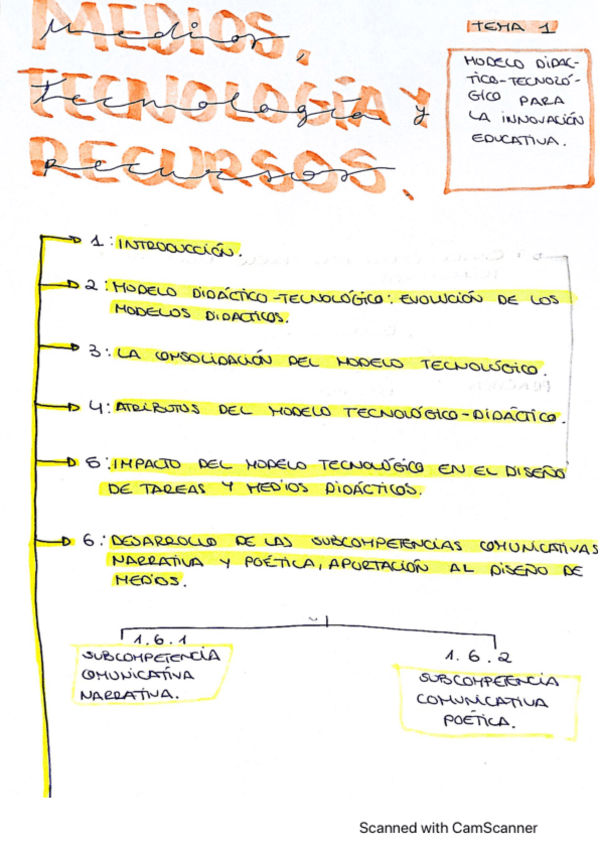 MEDIOS,
Medios,
TECNOLOGÍA Y
tecnología y
RECURSOS.
recursos.
TEMA 1
MODELO DIDÁC-
TICO-TECNOLÓ-
GICO PARA
LA INNOVACIÓN
EDUCATIVA.
1: INTRODUCCIÓN.
2: MODELO DIDÁCTICO-TECNOLÓGICO: EVOLUCIÓN DE LOS
MODELOS DIDACTICOS.
3: LA CONSOLIDACIÓN DEL MODELO TECNOLÓGICO.
4: ATRIBUTOS DEL MODELO TECNOLÓGICO-DIDÁCTICO.
5: IMPACTO DEL MODELO TECNOLÓGICO EN EL DISEÑO
DE TAREAS Y MEDIOS DIDÁCTICOS.
6: DESARROLLO DE LAS SUBCOMPETENCIAS COMUNICATIVAS
NARRATIVA Y POÉTICA, APORTACIÓN AL DISEÑO DE
MEDIOS.
1.6.1
SUBCOMPETENCIA
COMUNICATIVA
NARRATIVA.
1.6.2
SUBCOMPETENCIA
COMUNICATIVA
POÉTICA.
Scanned with CamScanner